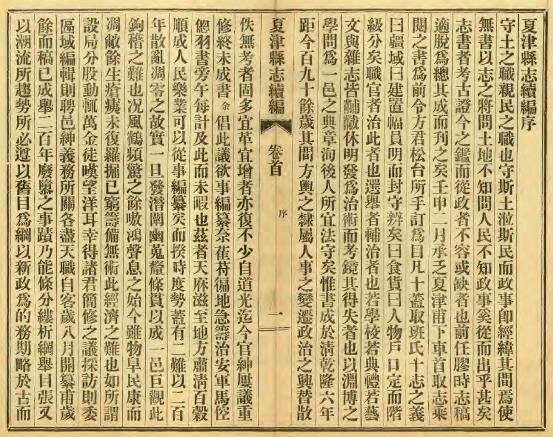 夏津縣志續編序
守土之職親民之職也守斯土涖斯民而政事卽經緯其間爲使
無書以志之將問土地不知問人民不知政事奚從而出乎甚矣
志書者考古證今之鑑而從政者不容或缺者也前任膠時志稿
適脫爲總其成而刊之矣壬申二月承乏夏津甫下車首取志乘
閱之書爲前令方君松台所手訂爲目凡十蓋取班氏十志之義
曰疆域曰建置幅員明而封守辨矣曰食貨曰人物戶口定而階
級分矣職官者治此者也選舉者輔治者也若學校若典禮若藝
文與雜志皆黼黻休明發爲治術而考鏡其得失者也以淵博之
學問爲一邑之典章洵後人所宜法守矣惟書成於清乾隆六年
距今百九十餘歲其間方輿之隸屬人事之變遷政治之興替散
夏津縣志續編
卷首
序
一
佚無考者固多宜革宜增者亦復不少自道光迄今官紳屢議重
修終未成書余倡此議欲事編纂奈萑苻徧地急籌治安軍馬倥
傯羽書旁午每計及此而未暇也茲者天庥滋至地方肅清百穀
順成人民樂業可以從事編纂矣而揆時度勢蓋有二難以二百
年散亂凋零之故實一旦發潛闡幽蒐釐條貫以成一邑巨觀此
鉤稽之難也况風鶴頻驚之餘嗷鴻聲息之始今雖物阜民康而
凋敝餘生瘡痍未復羅掘已窮籌備無術此經濟之難也如所謂
設局分股動輒萬金徒嘆望洋耳幸得諸君簡修之議採訪則委
區域編輯則聘邑紳義務所關各盡天職自客歲八月開纂甫歲
餘而稿已成舉二百年廢墜之事蹟乃能條分縷析綱舉目張又
以潮流所趨勢所必遵以舊目爲綱以新政爲的務期略於古而